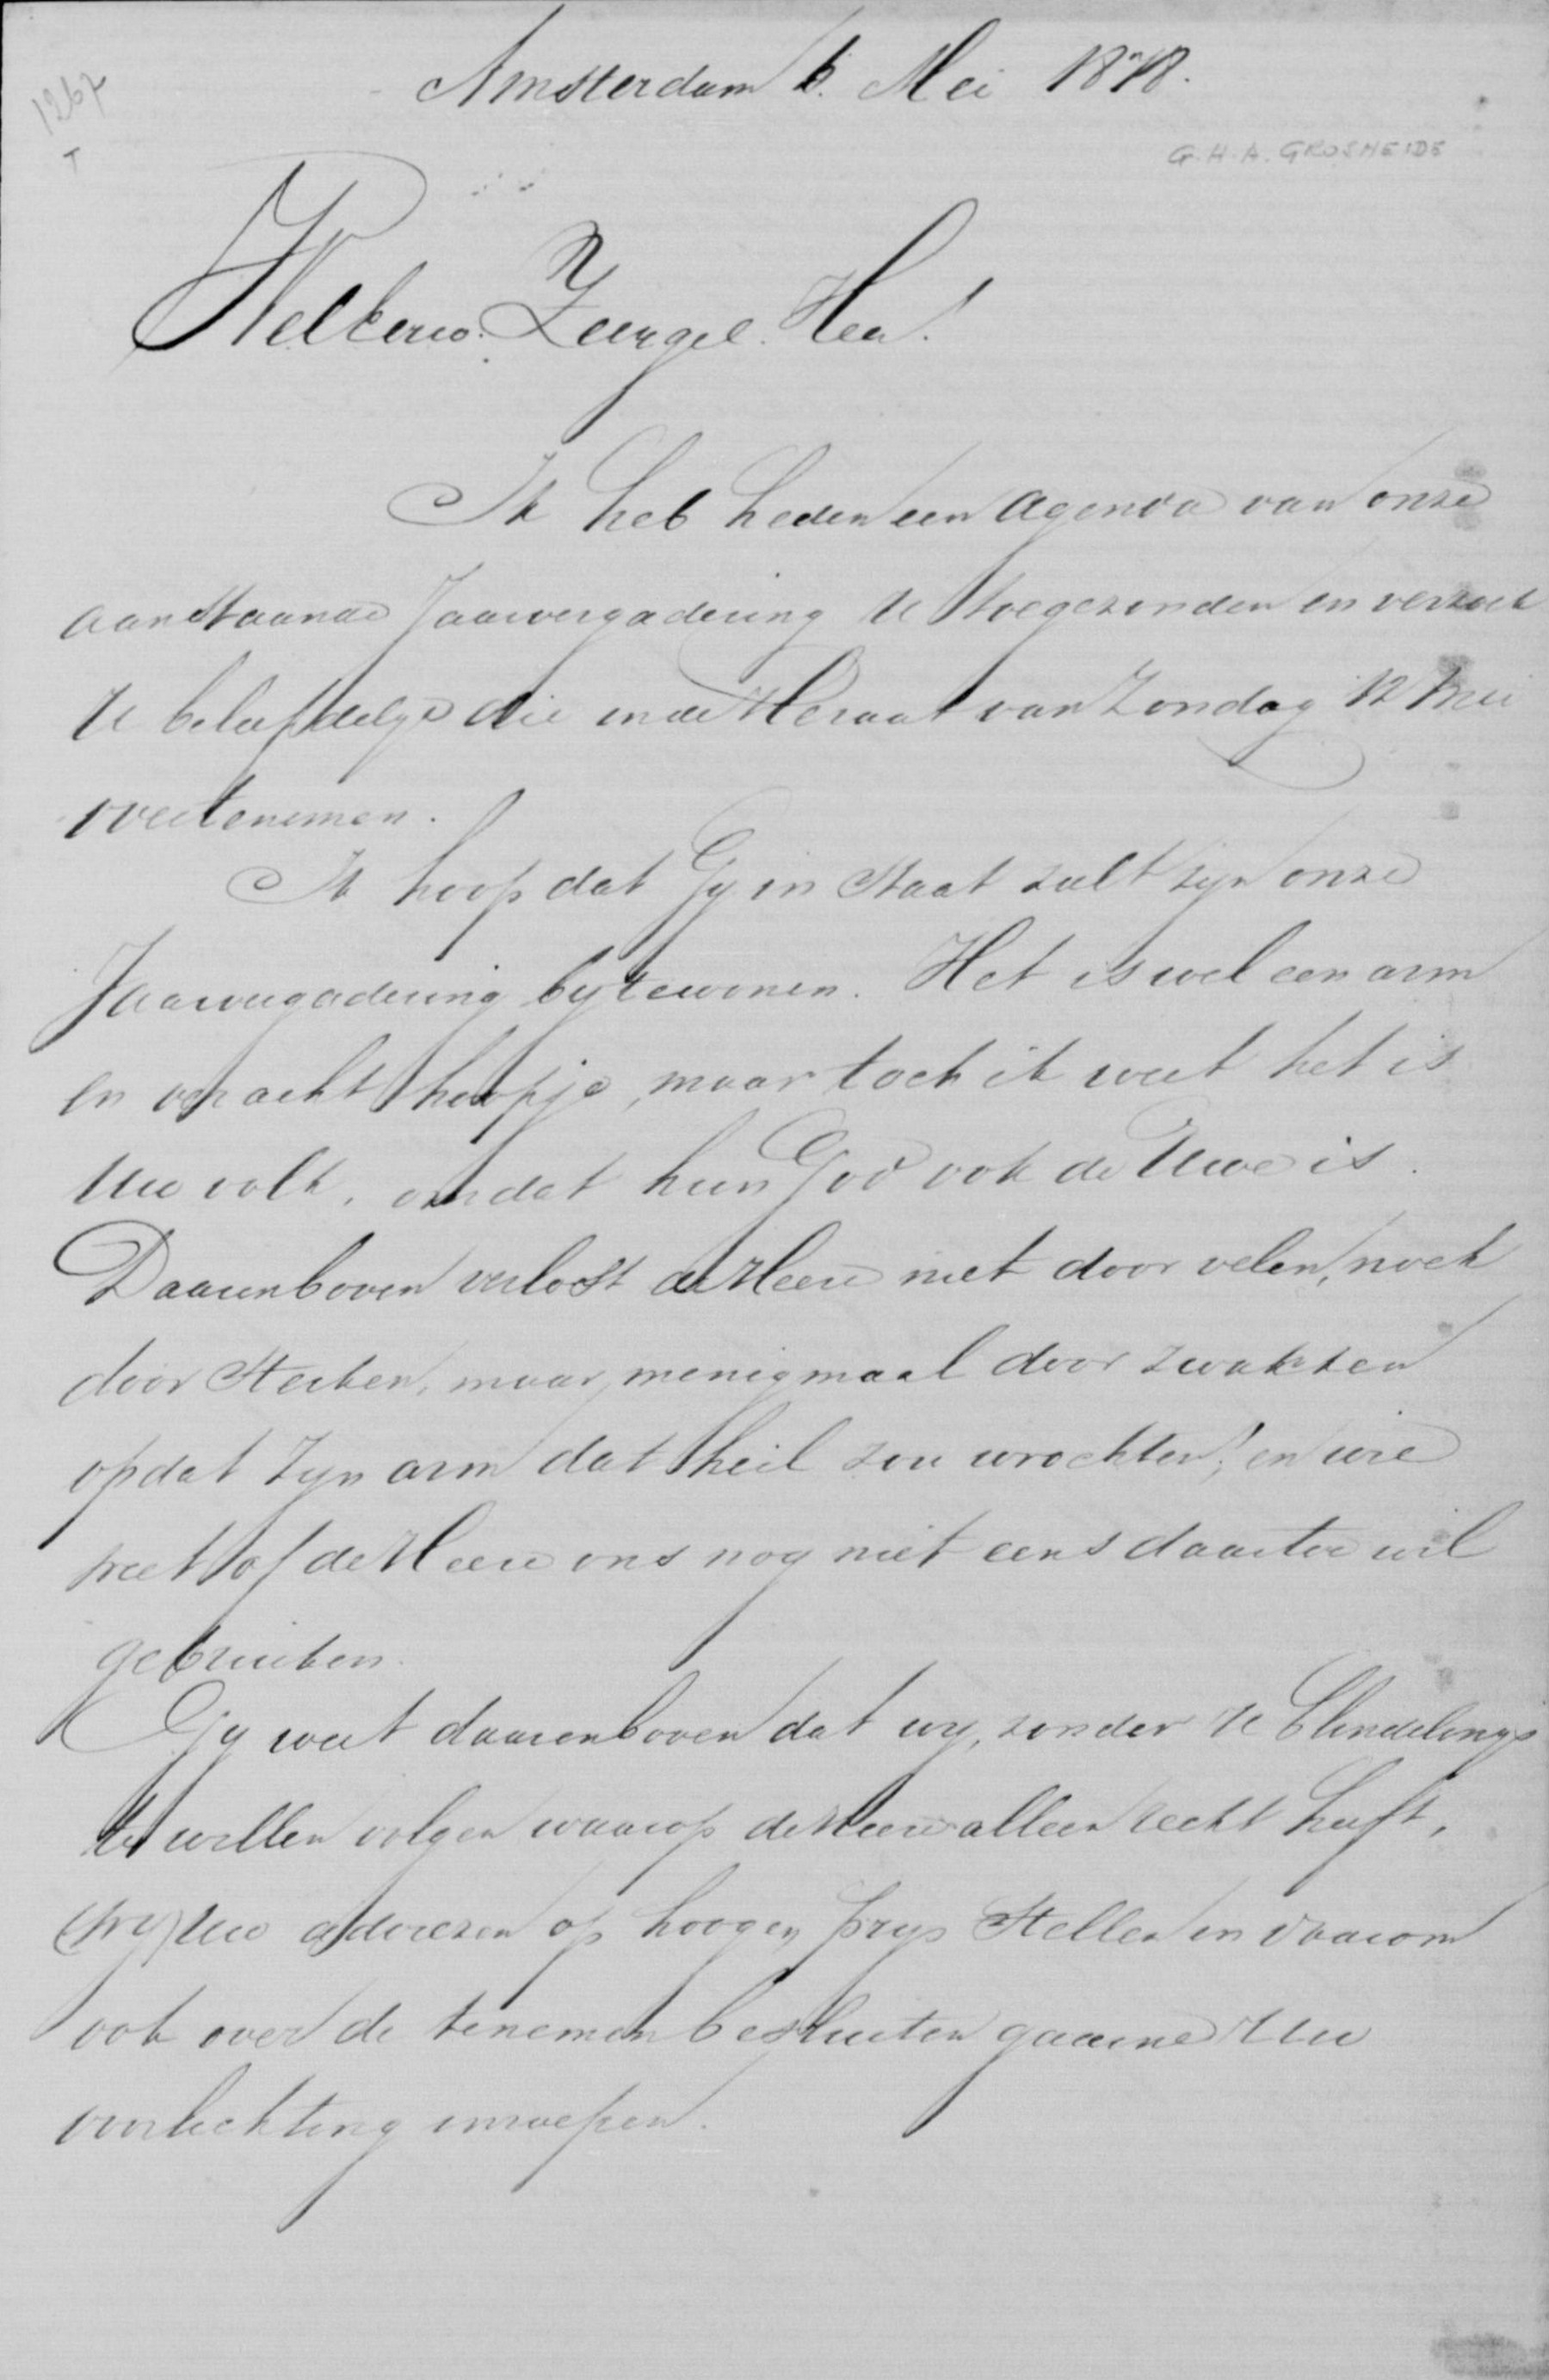 1267
T
Amsterdam 6. Mei 1878.
G.H.A. GROSHEIDE
WelEerw. Zeergel. Heer!
Ik heb heden een Agenda van onze
aanstaande Jaarvergadering U toegezonden en verzoek
U beleefdelijk die in de Heraut van Zondag 12 Mei
overtenemen.
Ik hoop dat Gy in staat zult zyn onze
Jaarvergadering bytewonen. Het is wel een arm
en veracht hoopje, maar toch ik weet het is
Uw volk, omdat hun God ook de Uwe is.
Daarenboven verlost de Heere niet door velen, noch
door sterken, maar menigmaal door zwakken
opdat Zyn arm dat heil zou wrochten; en wie
weet of de Heere ons nog niet eens daartoe wil
gebruiken.
Gy weet daarenboven dat wy, zonder U blindelings
te willen volgen waarop de Heere alleen recht heeft,
(wy) Uw adviezen op hoogen prys stellen en daarom
ook over de tenemen besluiten gaarne Uw
voorlichting inroepen.